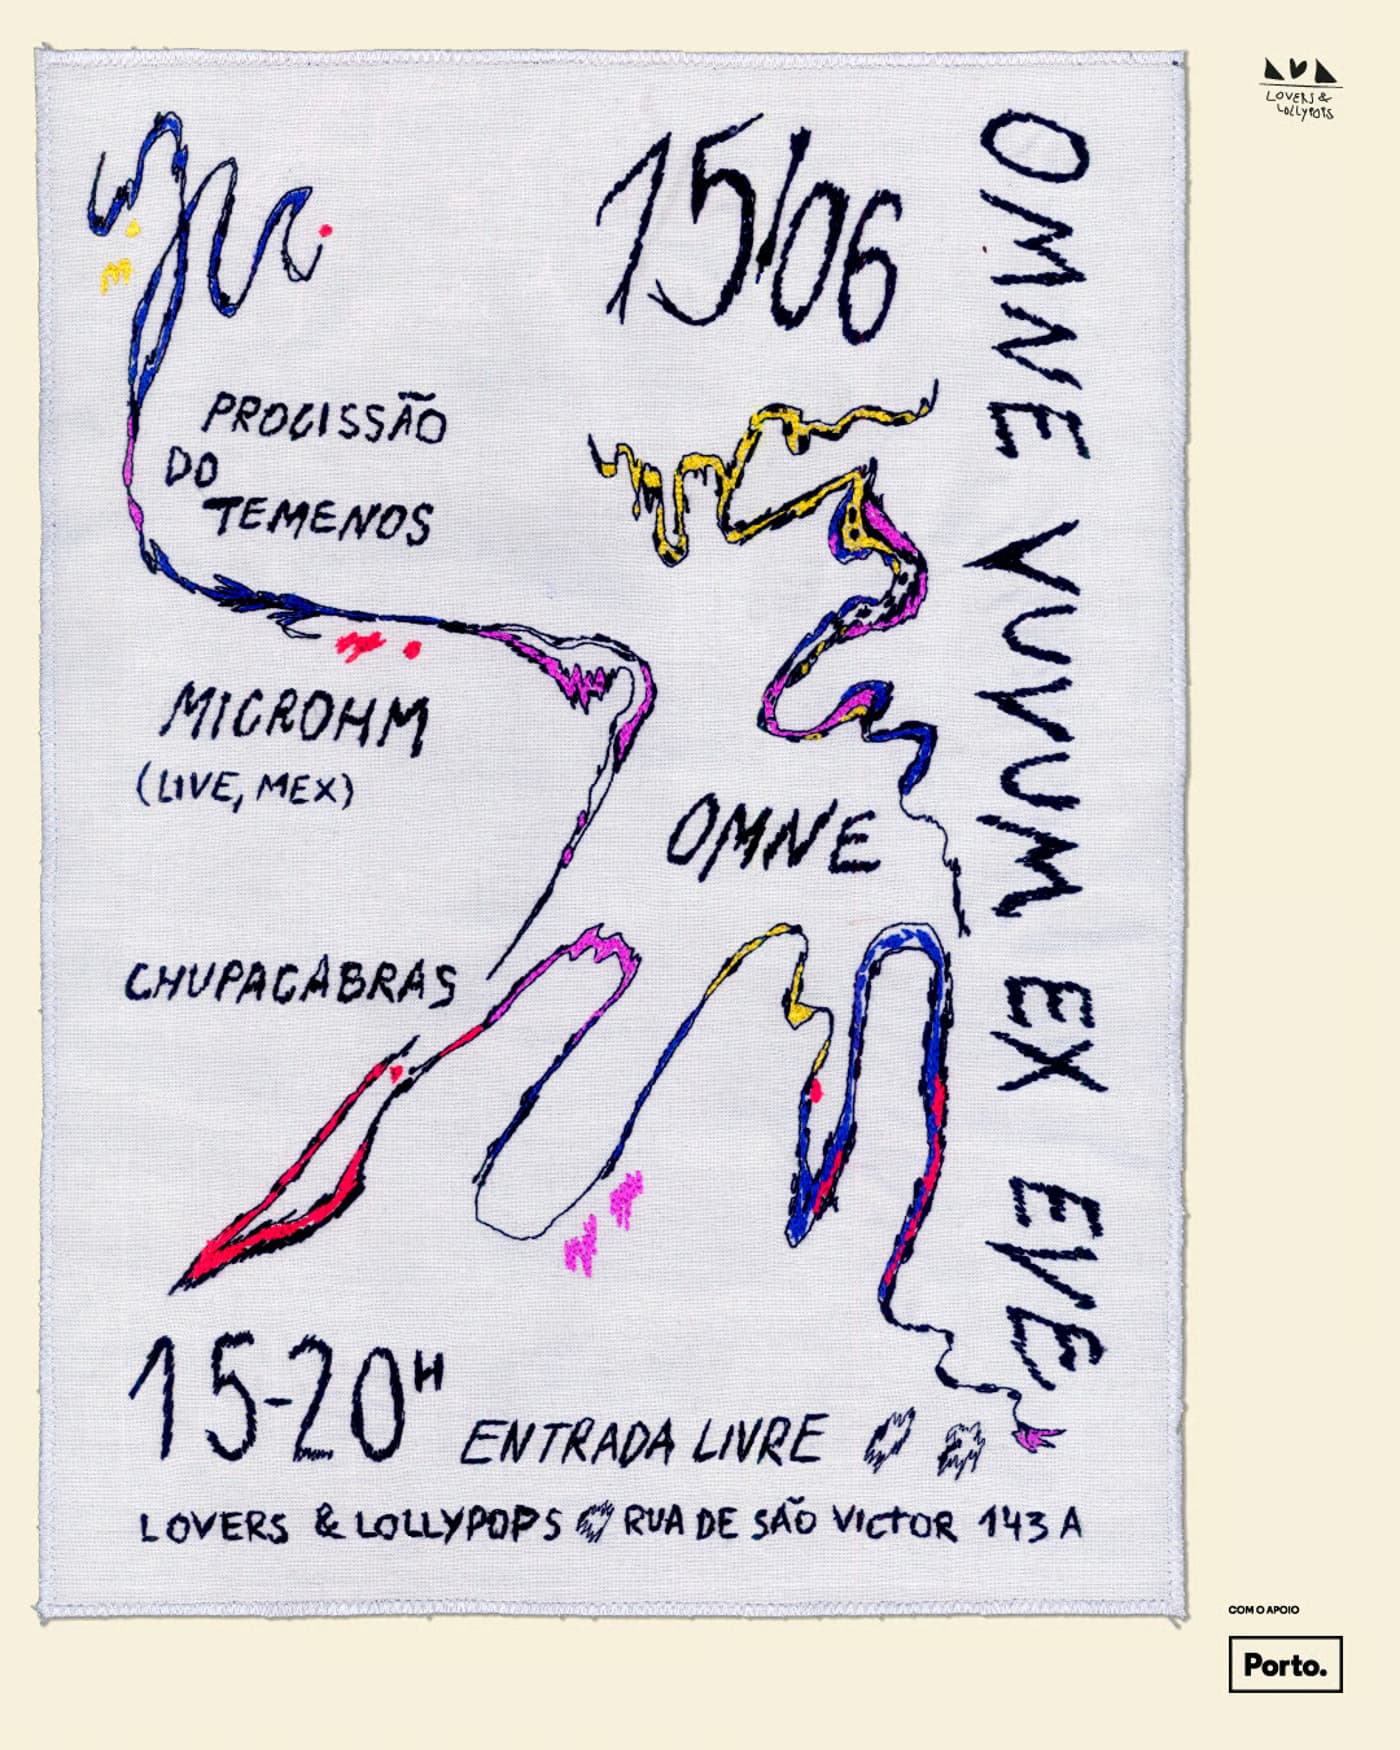 LOVERS &
LOLLYPOPS
15/06
OMNE VUVUM EX EVE
PROCISSÃO
DO
TEMENOS
MICROHM
(LIVE, MEX)
OMNE
CHUPACABRAS
15-20H
ENTRADA LIVRE
LOVERS & LOLLYPOPS RUA DE SÃO VICTOR 143 A
COM O APOIO
Porto.